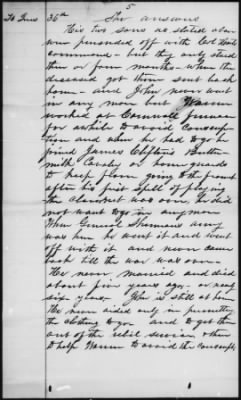 5
To Ques 36th She answers
His two sons as stated above
were persuaded off with Col Halts
command - but they only staid
then or four months - when the
deceased got them sent back
home - and John never went
in any more but Warren
worked at Cornwall furnace
for awhile to avoid Conscrip
tion and when he had to go he
joined James Cliftons Butter
milk Cavalry or home guards
to keep from going to the front
after his first spell of playing
the was over, he did
not want to go in any more
When General Shermans army
was here he went it and went
off with it and never came
back till the war was over -
He never married and died
about five years ago - or nearly
six years, John is still at home
He never aided only in permitting
the clothing to go and to get them
out of the rebel service then
to help Warren to avoid the conscript